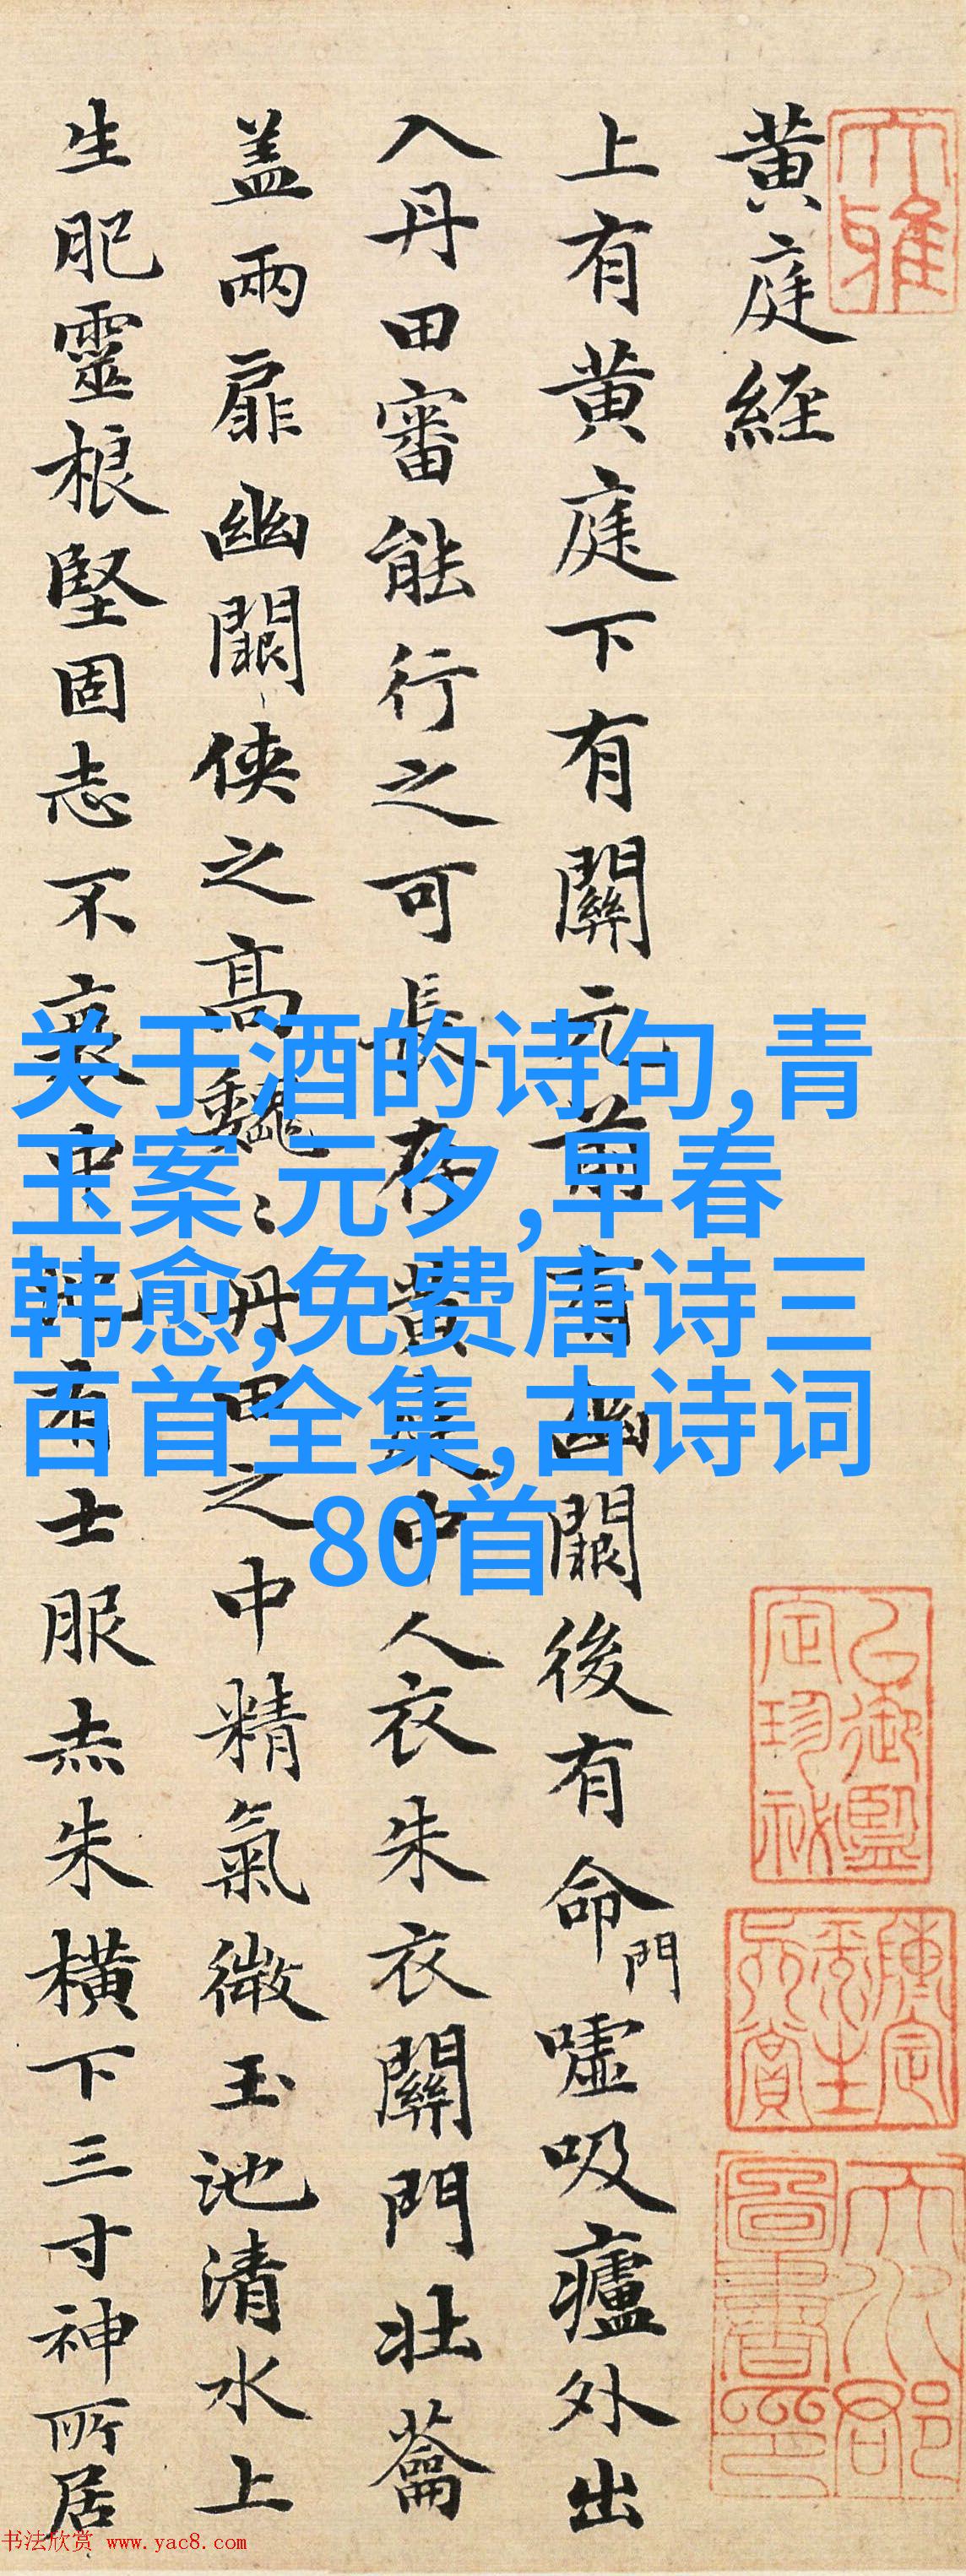 大雅
黄庭経
上有黄庭下有關元前有幽闕後有命門嘘吸廬外出
入丹田審能行之可長存黄庭中人衣朱衣關門壮蘥
盖兩扉幽闕侠之高巍〻丹田之中精氣微玉池清水上
生肥靈根堅固志不衰中池有士服赤朱横下三寸神所居
关于酒的诗句,青
玉案 元夕,早春
韩愈,免费唐诗三
百首全集,古诗词
80首
书法欣赏 www.yac8.com